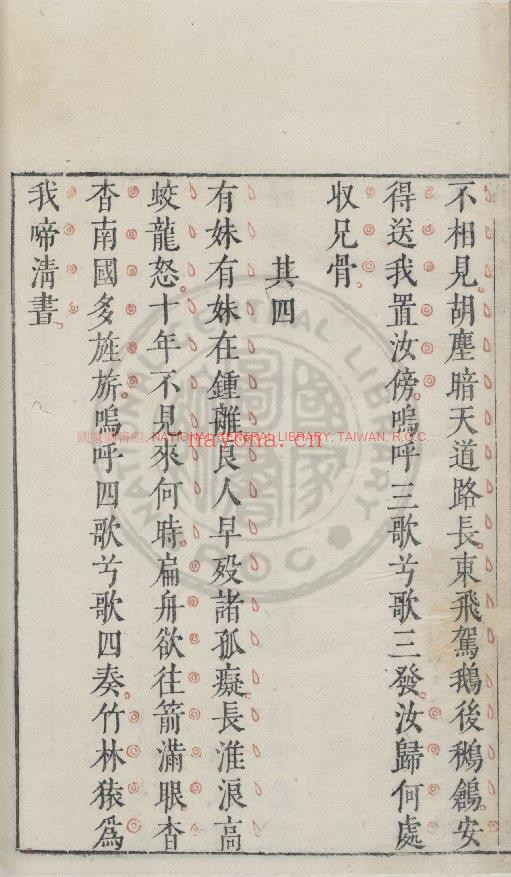 不相見胡塵暗天道路長東飛駕鵝後鶖鶬安
得送我置汝傍嗚呼三歌兮歌三發汝歸何處
収兄骨
其四
有妹有妹在鍾離良人早歿諸孤癡長淮浪高
蛟龍怒十年不見來何時扁舟欲往箭滿眼杳
杳南國多旌旂嗚呼四歌兮歌四奏竹林猿爲
我啼清晝
國家圖書館, NATIONAL CENTRAL LIBRARY, TAIWAN, R.O.C.
nayona.cn
NATIONAL CENTRAL LIBRARY
ROC